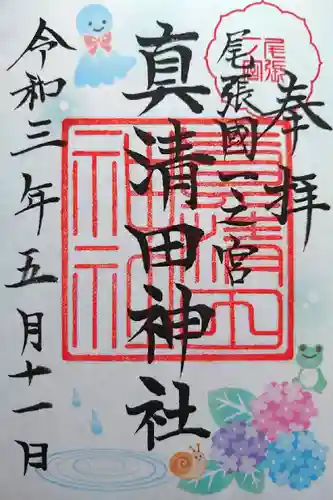 奉拝
尾張國一之宮
真清田神社
令和三年五月十一日
尾張
一宮